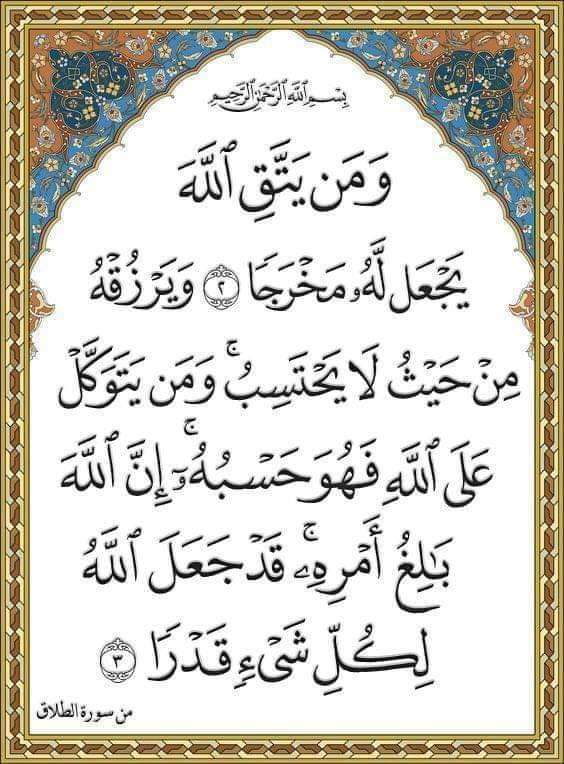 بِسْمِ ٱللَّهِ ٱلرَّحْمَٰنِ ٱلرَّحِيمِ
وَمَن يَتَّقِ ٱللَّهَ
يَجْعَل لَّهُۥ مَخْرَجًا ٢ وَيَرْزُقْهُ
مِنْ حَيْثُ لَا يَحْتَسِبُ ۚ وَمَن يَتَوَكَّلْ
عَلَى ٱللَّهِ فَهُوَ حَسْبُهُۥٓ ۚ إِنَّ ٱللَّهَ
بَٰلِغُ أَمْرِهِۦ ۚ قَدْ جَعَلَ ٱللَّهُ
لِكُلِّ شَىْءٍ قَدْرًا ٣
من سورة الطلاق